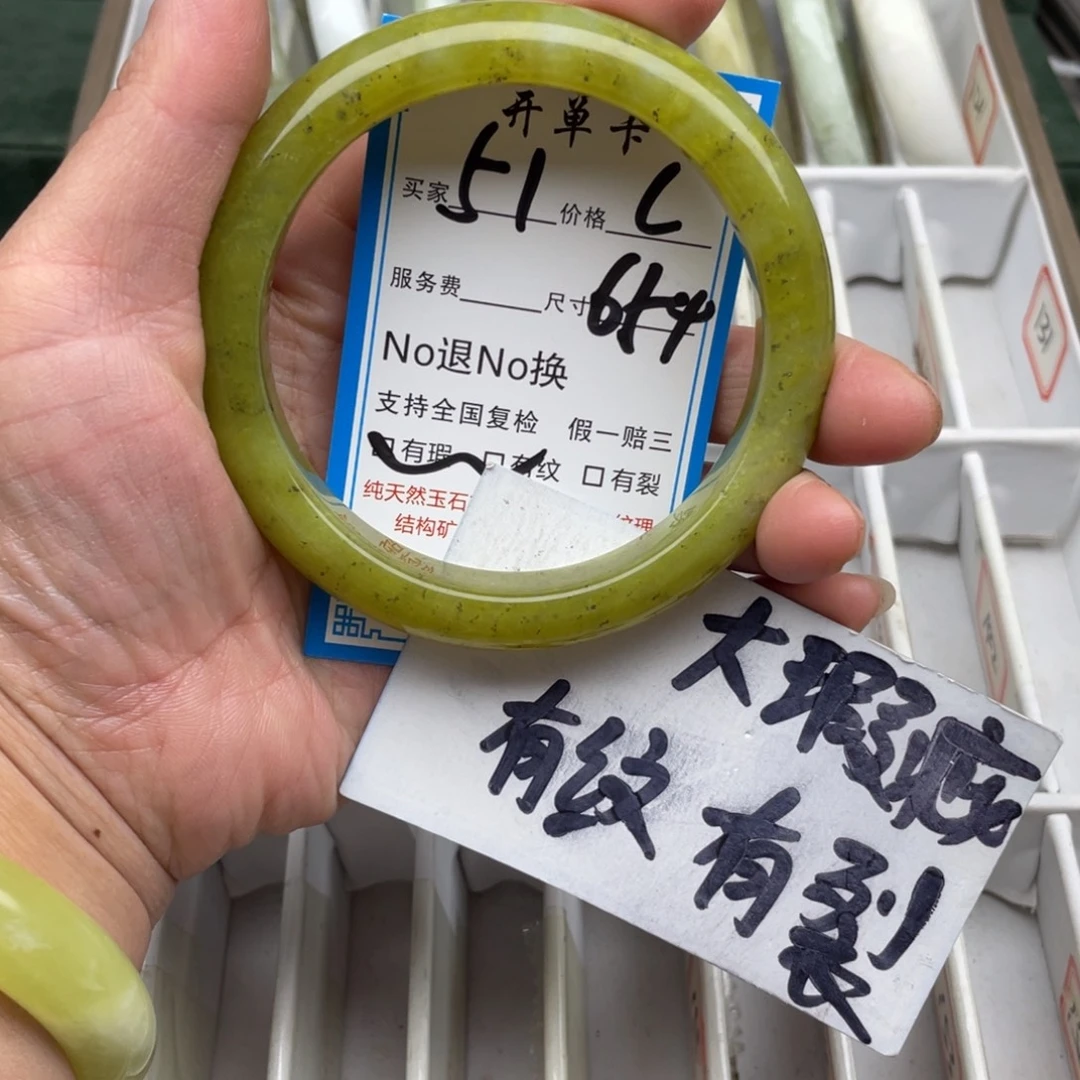 开单卡
买家 51 价格 L
服务费 尺寸 6f54
No退No换
支持全国复检 假一赔三
口有瑕 口有纹 口有裂
纯天然玉石 纹理
结构矿
大瑕疵
有纹有裂